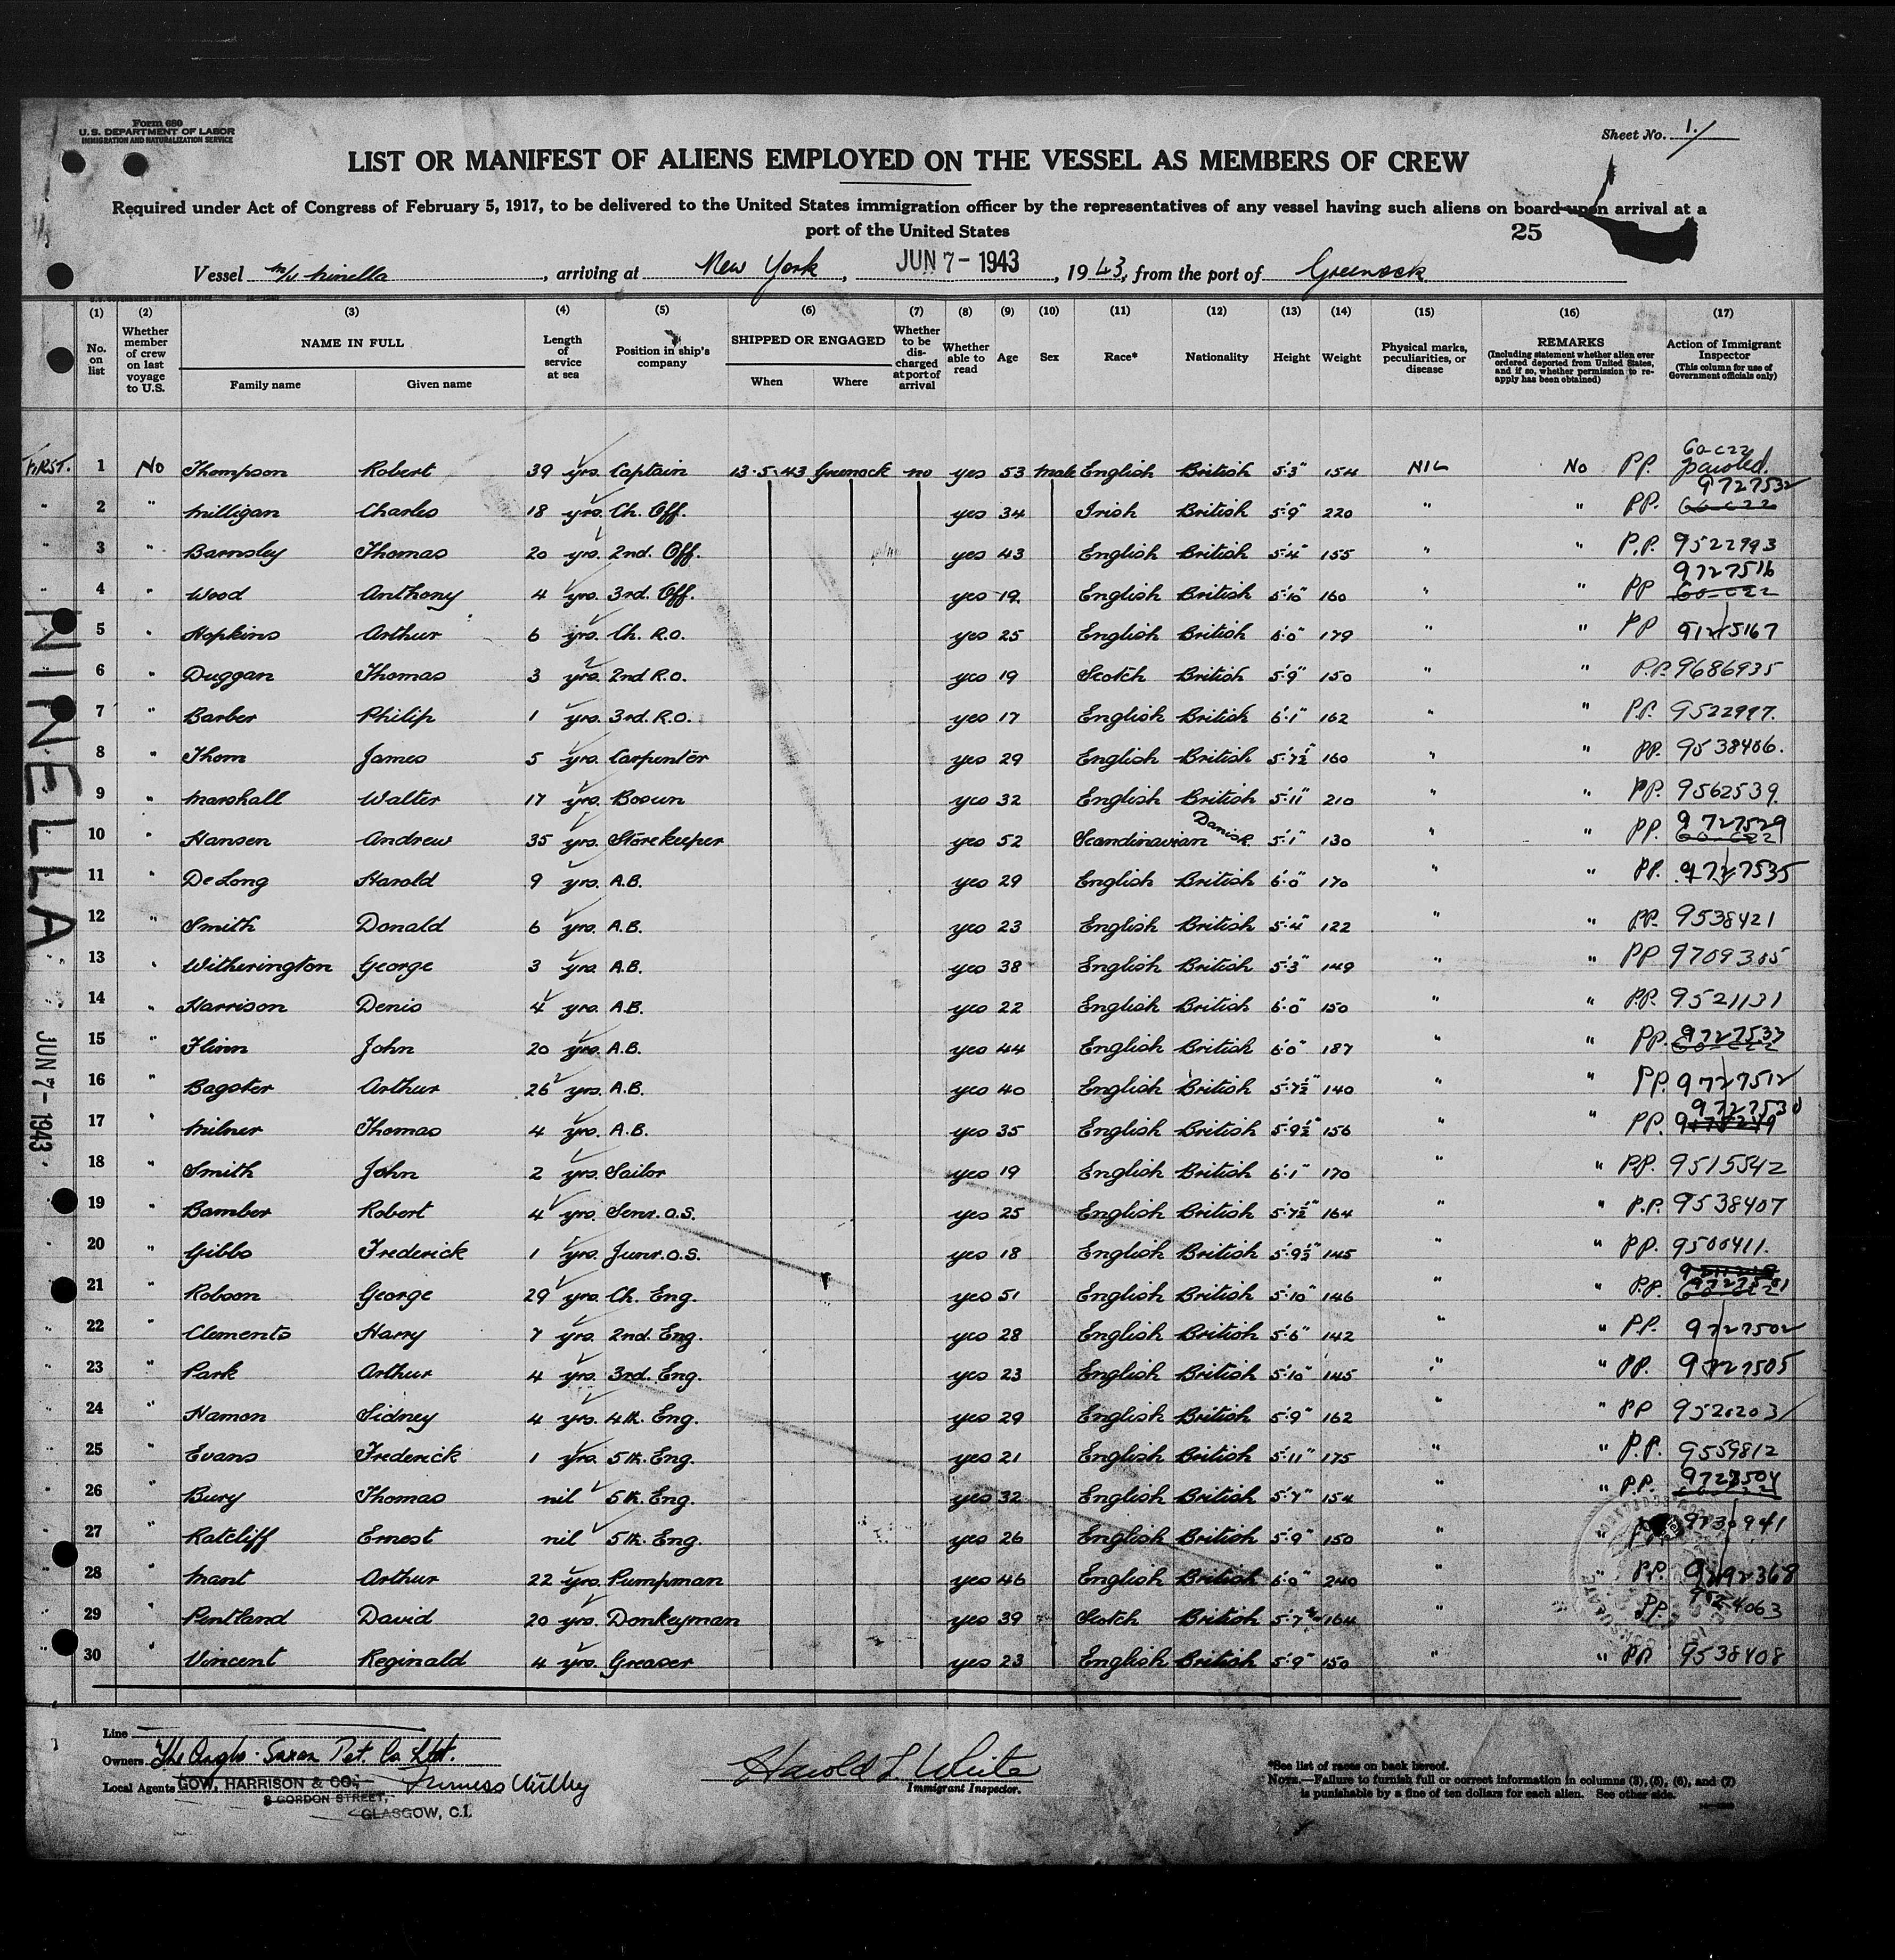 Form 680
U.S. DEPARTMENT OF LABOR
IMMIGRATION AND NATURALIZATION SERVICE
Sheet No. 1.
LIST OR MANIFEST OF ALIENS EMPLOYED ON THE VESSEL AS MEMBERS OF CREW
Required under Act of Congress of February 5, 1917, to be delivered to the United States immigration officer by the representatives of any vessel having such aliens on board upon arrival at a
port of the United States
25
Vessel m/v Ninella, arriving at New York, JUN 7 - 1943, 1943, from the port of Greenock
(1) (2) (3) (4) (5) (6) (7) (8) (9) (10) (11) (12) (13) (14) (15) (16) (17)
No. on list
Whether member of crew on last voyage to U.S.
NAME IN FULL
Family name Given name
Length of service at sea
Position in ship's company
SHIPPED OR ENGAGED
When Where
Whether to be discharged at port of arrival
Whether able to read
Age
Sex
Race*
Nationality
Height
Weight
Physical marks, peculiarities, or disease
REMARKS
(Including statement whether alien ever ordered deported from United States, and if so, whether permission to reapply has been obtained)
Action of Immigrant Inspector
(This column for use of Government officials only)
FIRST. 1 No Thompson Robert 39 yrs. Captain 13.5.43 Greenock no yes 53 male English British 5'.3" 154 NIL No P.P.
" 2 " Milligan Charles 18 yrs. Ch. Off. yes 34 Irish British 5'.9" 220 " " P.P. 9727532
" 3 " Barnsley Thomas 20 yrs. 2nd. Off. yes 43 English British 5'.4" 155 " " P.P. 9522993
" 4 " Wood Anthony 4 yrs. 3rd. Off. yes 19 English British 5'.10" 160 " " PP 9727516
" 5 " Hopkins Arthur 6 yrs. Ch. R.O. yes 25 English British 6'.0" 179 " " PP
" 6 " Duggan Thomas 3 yrs. 2nd R.O. yes 19 Scotch British 5'.9" 150 " " P.P. 9686935
" 7 " Barber Philip 1 yrs. 3rd. R.O. yes 17 English British 6'.1" 162 " " P.P. 9522997.
" 8 " Thom James 5 yrs. Carpenter yes 29 English British 5'.7½" 160 " " PP. 9538406.
" 9 " Marshall Walter 17 yrs. Bosun yes 32 English British 5'.11" 210 " " P.P. 9562539.
" 10 " Hansen Andrew 35 yrs. Storekeeper yes 52 Scandinavian Danish 5'.1" 130 " " P.P. 9727529
" 11 " De Long Harold 9 yrs. A.B. yes 29 English British 6'.0" 170 " " P.P. 9727535
" 12 " Smith Donald 6 yrs. A.B. yes 23 English British 5'.4" 122 " " P.P. 9538421
" 13 " Witherington George 3 yrs. A.B. yes 38 English British 5'.3" 149 " " PP 9709305
" 14 " Harrison Denis 4 yrs. A.B. yes 22 English British 6'.0" 150 " " P.P. 9521131
" 15 " Flinn John 20 yrs. A.B. yes 44 English British 6'.0" 187 " " P.P.
" 16 " Bagster Arthur 26 yrs. A.B. yes 40 English British 5'.7½" 140 " " P.P. 9727512
" 17 " Milner Thomas 4 yrs. A.B. yes 35 English British 5'.9½" 156 " " P.P. 9727530
" 18 " Smith John 2 yrs. Sailor yes 19 English British 6'.1" 170 " " P.P. 9515542
" 19 " Bamber Robert 4 yrs. Senr. O.S. yes 25 English British 5'.7½" 164 " " P.P. 9538407
" 20 " Gibbs Frederick 1 yrs. Junr. O.S. yes 18 English British 5'.9½" 145 " " P.P. 9500411.
" 21 " Robson George 29 yrs. Ch. Eng. yes 51 English British 5'.10" 146 " " P.P.
" 22 " Clements Harry 7 yrs. 2nd. Eng. yes 28 English British 5'.6" 142 " " P.P. 9727502
" 23 " Park Arthur 4 yrs. 3rd. Eng. yes 23 English British 5'.10" 145 " " P.P. 9727505
" 24 " Hamon Sidney 4 yrs. 4th. Eng. yes 29 English British 5'.9" 162 " " PP 9520203
" 25 " Evans Frederick 1 yrs. 5th. Eng. yes 21 English British 5'.11" 175 " " P.P. 9559812
" 26 " Bury Thomas nil 5th. Eng. yes 32 English British 5'.7" 154 " " P.P. 9727504
" 27 " Ratcliff Ernest nil 5th. Eng. yes 26 English British 5'.9" 150 " "
" 28 " Mant Arthur 22 yrs. Pumpman yes 46 English British 6'.0" 240 " " P.P.
" 29 " Pentland David 20 yrs. Donkeyman yes 39 Scotch British 5'.7 164 " PP.
" 30 " Vincent Reginald 4 yrs. Greaser yes 23 English British 5'.9" 150 " " PP 9538408
NINELLA
JUN 7 - 1943
Line
Owners The Anglo-Saxon Pet. Co. Ltd.
Local Agents GOW, HARRISON & CO., Furness Withy
8 GORDON STREET,
GLASGOW, C.1.
Harold L White
Immigrant Inspector.
*See list of races on back hereof.
NOTE.—Failure to furnish full or correct information in columns (3), (5), (6), and (7)
is punishable by a fine of ten dollars for each alien. See other side.